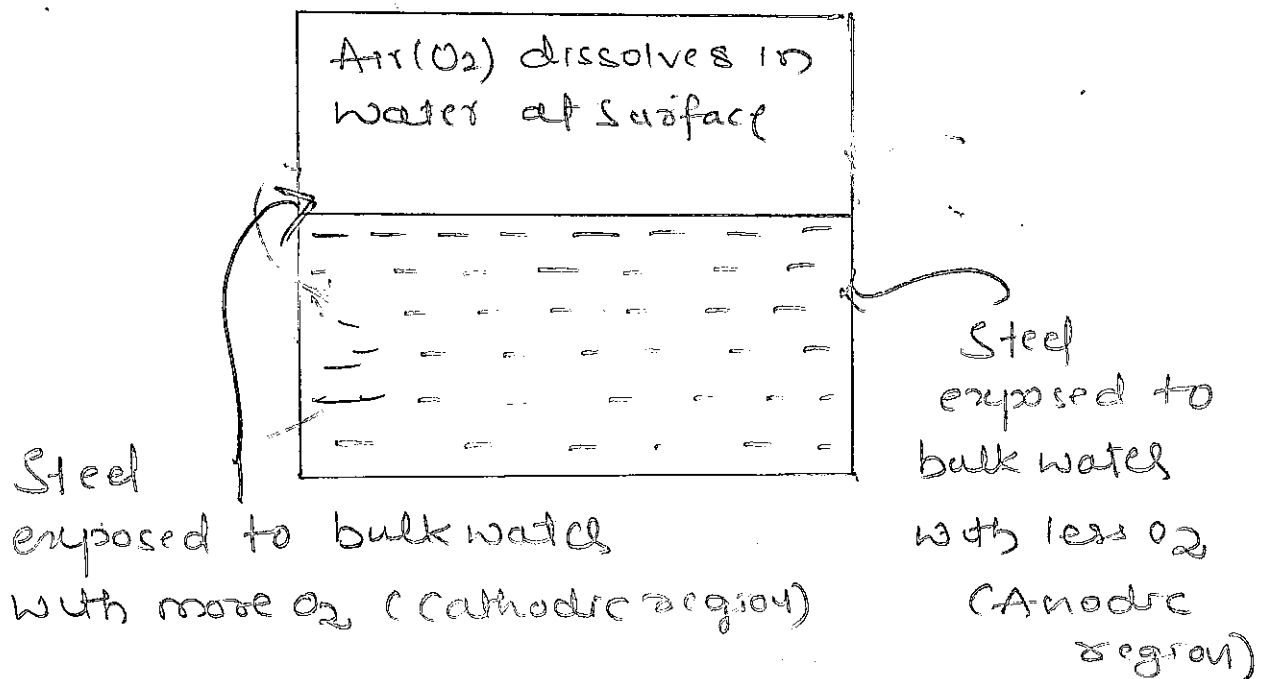 Air(O2) dissolves in
water at surface
Steel
exposed to
bulk water
with less O2
(Anodic
region)
Steel
exposed to bulk water
with more O2 (Cathodic region)